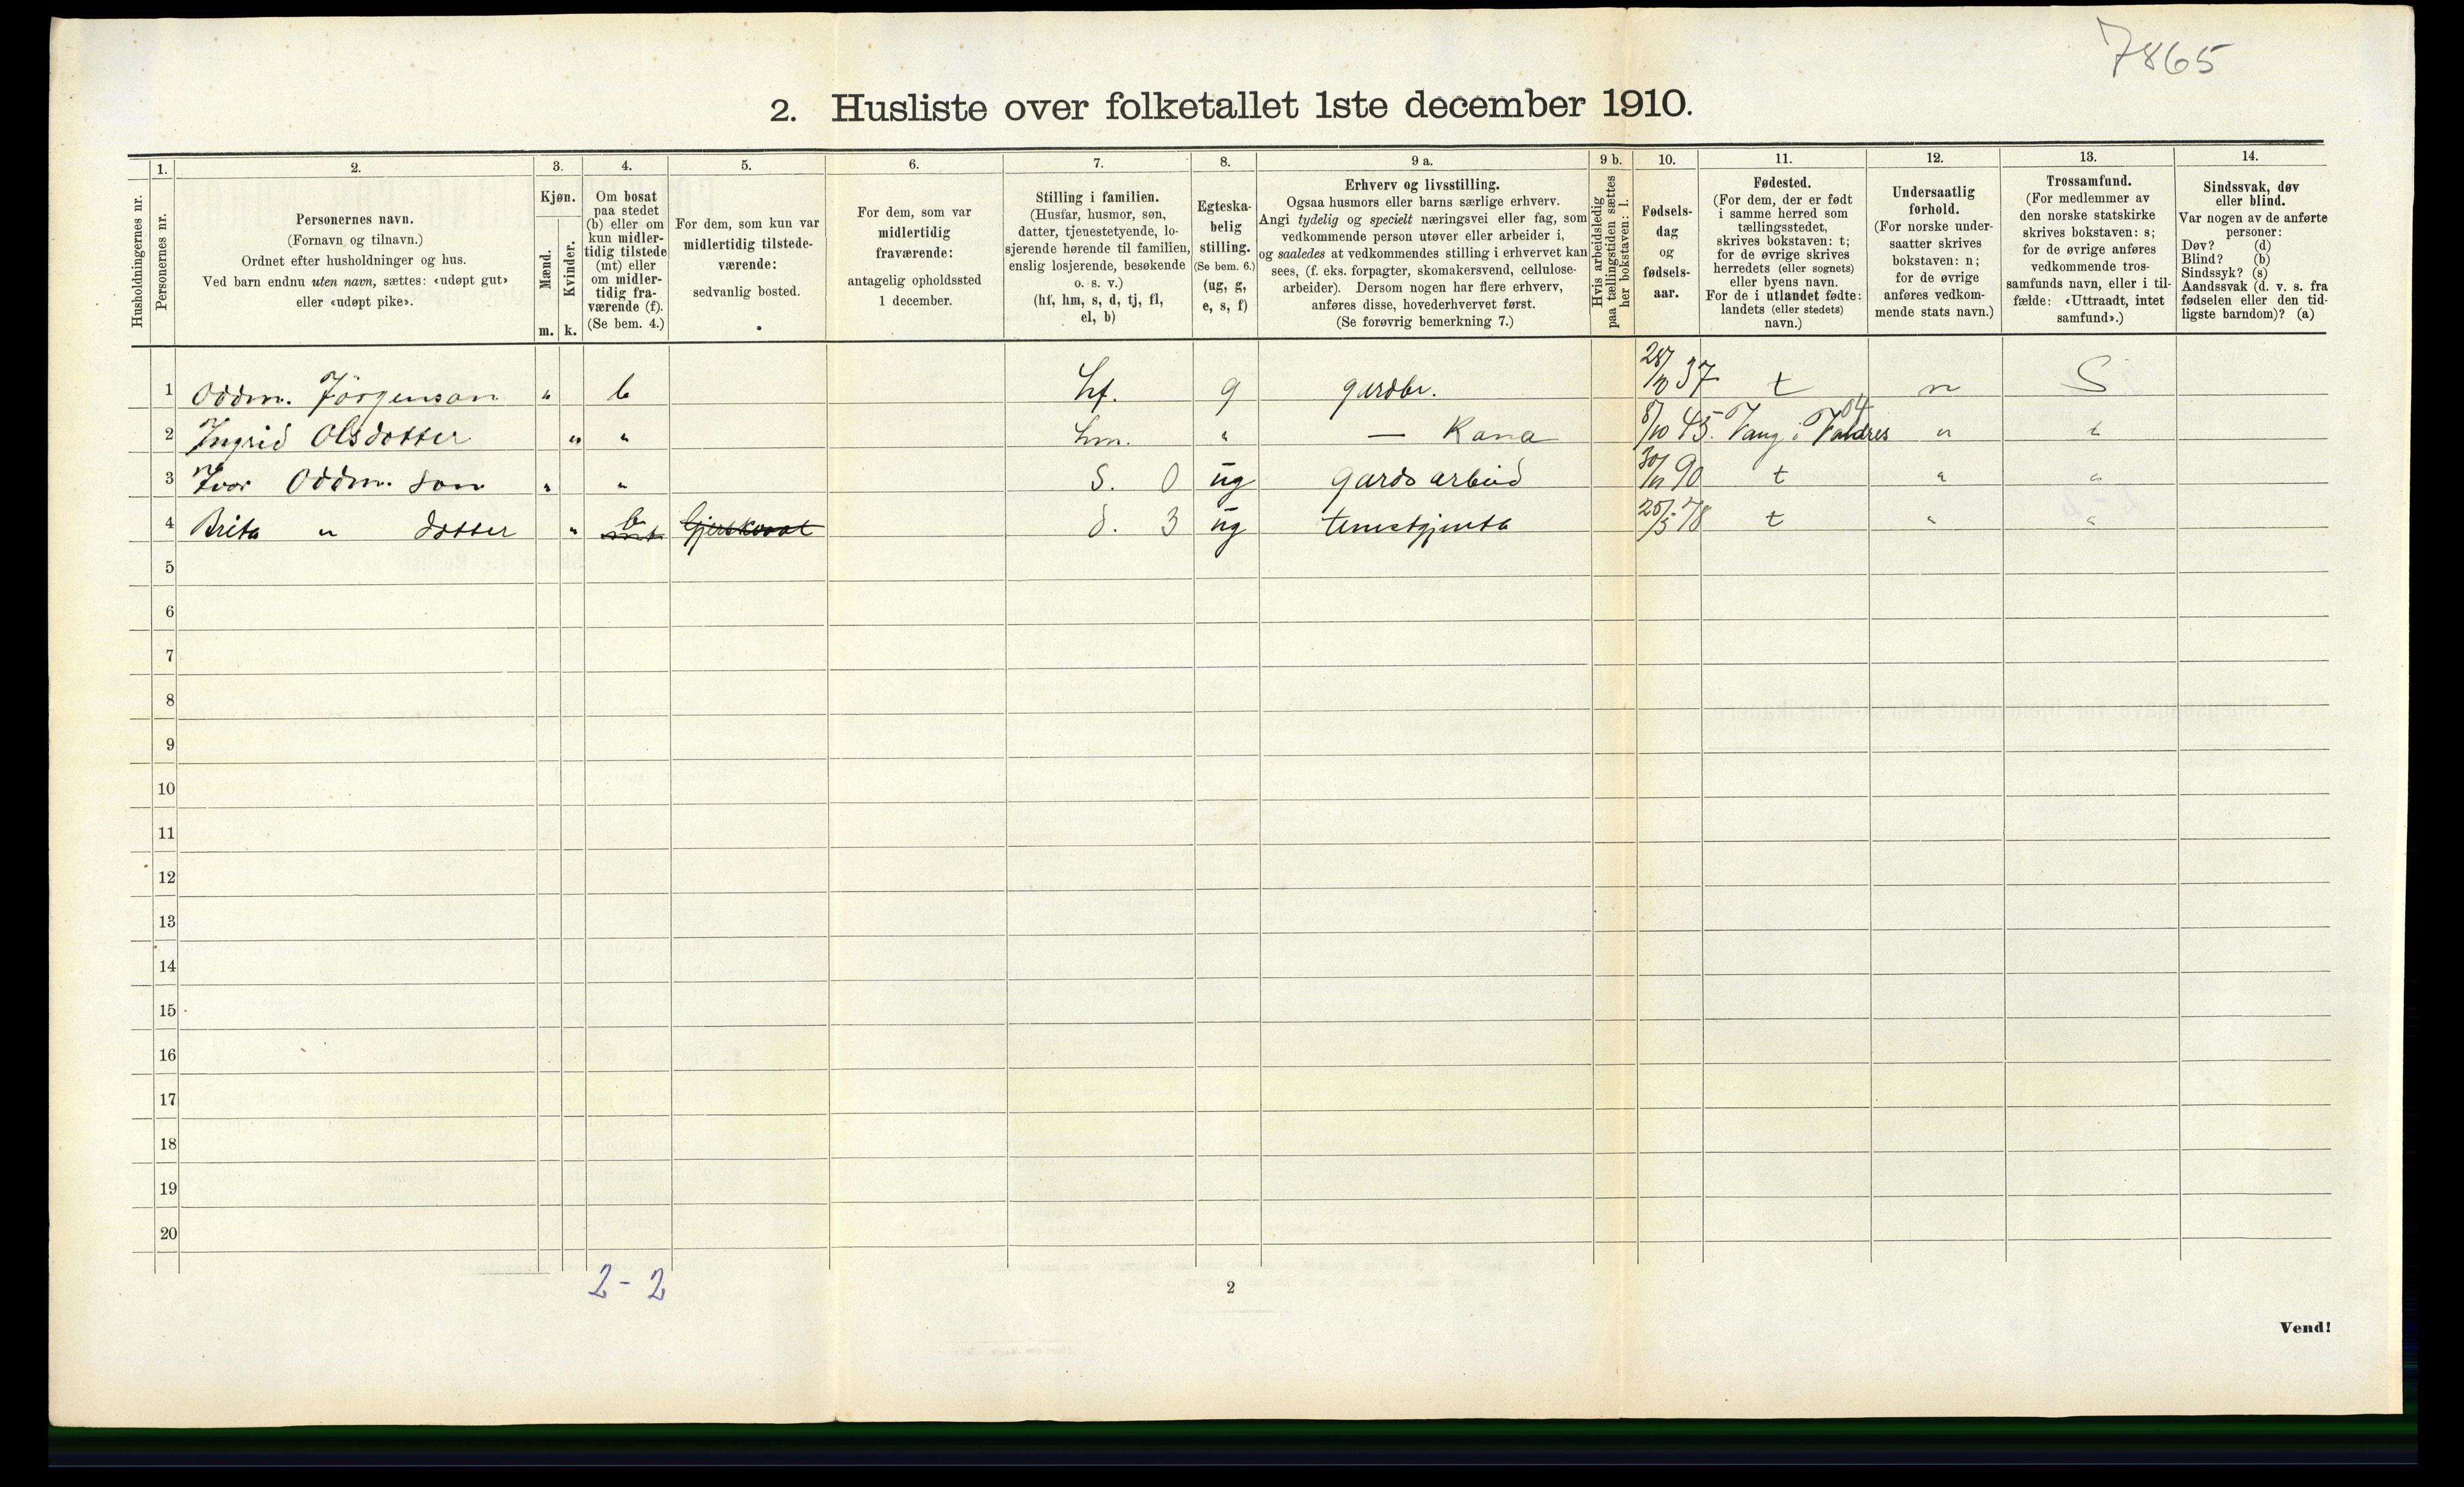 7865
2. Husliste over folketallet 1ste december 1910.
1. 2. 3. 4. 5. 6. 7. 8. 9 a. 9 b. 10. 11. 12. 13. 14.
Husholdningernes nr.
Personernes nr.
Personernes navn.
(Fornavn og tilnavn.)
Ordnet efter husholdninger og hus.
Ved barn endnu uten navn, sættes: «udøpt gut»
eller «udøpt pike».
Kjøn.
Mænd.
Kvinder.
m. k.
Om bosat
paa stedet
(b) eller om
kun midler-
tidig tilstede
(mt) eller
om midler-
tidig fra-
værende (f).
(Se bem. 4.)
For dem, som kun var
midlertidig tilstede-
værende:
sedvanlig bosted.
For dem, som var
midlertidig
fraværende:
antagelig opholdssted
1 december.
Stilling i familien.
(Husfar, husmor, søn,
datter, tjenestetyende, lo-
sjerende hørende til familien,
enslig losjerende, besøkende
o. s. v.)
(hf, hm, s, d, tj, fl,
el, b)
Egteska-
belig
stilling.
(Se bem. 6.)
(ug, g,
e, s, f)
Erhverv og livsstilling.
Ogsaa husmors eller barns særlige erhverv.
Angi tydelig og specielt næringsvei eller fag, som
vedkommende person utøver eller arbeider i,
og saaledes at vedkommendes stilling i erhvervet kan
sees, (f. eks. forpagter, skomakersvend, cellulose-
arbeider). Dersom nogen har flere erhverv,
anføres disse, hovederhvervet først.
(Se forøvrig bemerkning 7.)
Hvis arbeidsledig
paa tællingstiden sættes
her bokstaven: l.
Fødsels-
dag
og
fødsels-
aar.
Fødested.
(For dem, der er født
i samme herred som
tællingsstedet,
skrives bokstaven: t;
for de øvrige skrives
herredets (eller sognets)
eller byens navn.
For de i utlandet fødte:
landets (eller stedets)
navn.)
Undersaatlig
forhold.
(For norske under-
saatter skrives
bokstaven: n;
for de øvrige
anføres vedkom-
mende stats navn.)
Trossamfund.
(For medlemmer av
den norske statskirke
skrives bokstaven: s;
for de øvrige anføres
vedkommende tros-
samfunds navn, eller i til-
fælde: «Uttraadt, intet
samfund».)
Sindssvak, døv
eller blind.
Var nogen av de anførte
personer:
Døv? (d)
Blind? (b)
Sindssyk? (s)
Aandssvak (d. v. s. fra
fødselen eller den tid-
ligste barndom)? (a)
1 Oddm. Jörgenson " b hf. g gardbr. 28/10 37 t n S
2 Ingrid Olsdotter " " hm. " — Kona 8/10 45. Vang i Valdres 04 " "
3 Ivar Oddm. son " " S. 0 ug gardsarbeid 90 t " "
4 Brita " dotter " b mt d. 3 ug tenestgjenta 25/5 78 t " "
5
6
7
8
9
10
11
12
13
14
15
16
17
18
19
20
2 - 2
2
Vend!